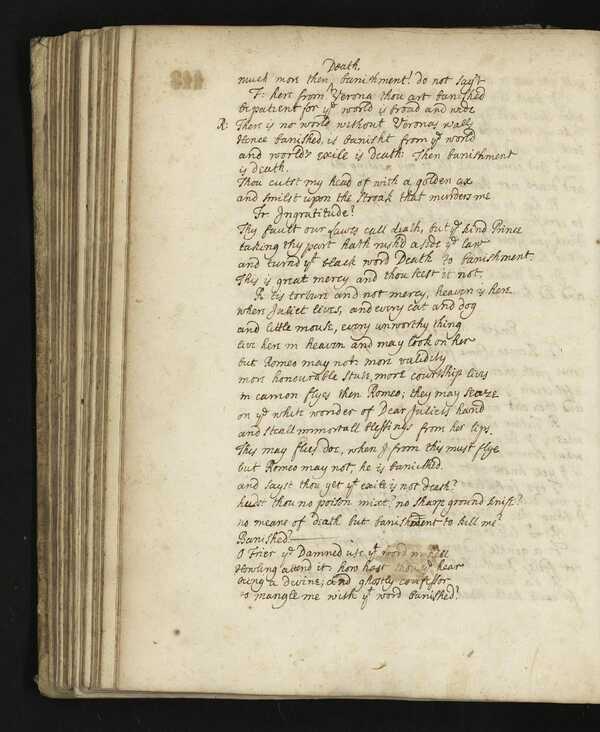 Death.
much more then, banishment! do not say't
F: here from Verona thou art banished
be patient for ye world is broad and wide
R: There is no world without Veronas walls
Hence banished, is banisht from ye world
and worlds exile is death: Then banishment
is death.
Thou cutst my head of with a golden ax
and smilst upon the stroak that murders me
Fr Ingratitude!
Thy fault our Lawes call death, but ye kind Prince
taking thy part hath rushd aside ye law
and turnd yt black word Death to banishment
This is great mercy and thou seest it not.
R tis torture and not mercy, heaven is here
where Juliet lives, and every cat and dog
and little mouse, every unworthy thing
live here in heaven and may look on her
but Romeo may not: more validity
more honourable state, more courtship lives
in carrion flyes then Romeo; they may seaze
on ye white wonder of Dear Juliets hand
and steall immortall blessings from her lips.
This may flies doe, when J from this must flye
but Romeo may not, he is banished.
and sayst thou yet yt exile is not death?
hadst thou no poison mixt? no sharp ground knife?
no means of death but banishment to kill me?
Banished?
O Frier ye Damned use yt word in hell
Howling attend it how hast thou ye hear
being a divine; and ghostly confessor
to mangle me with yt word banished?